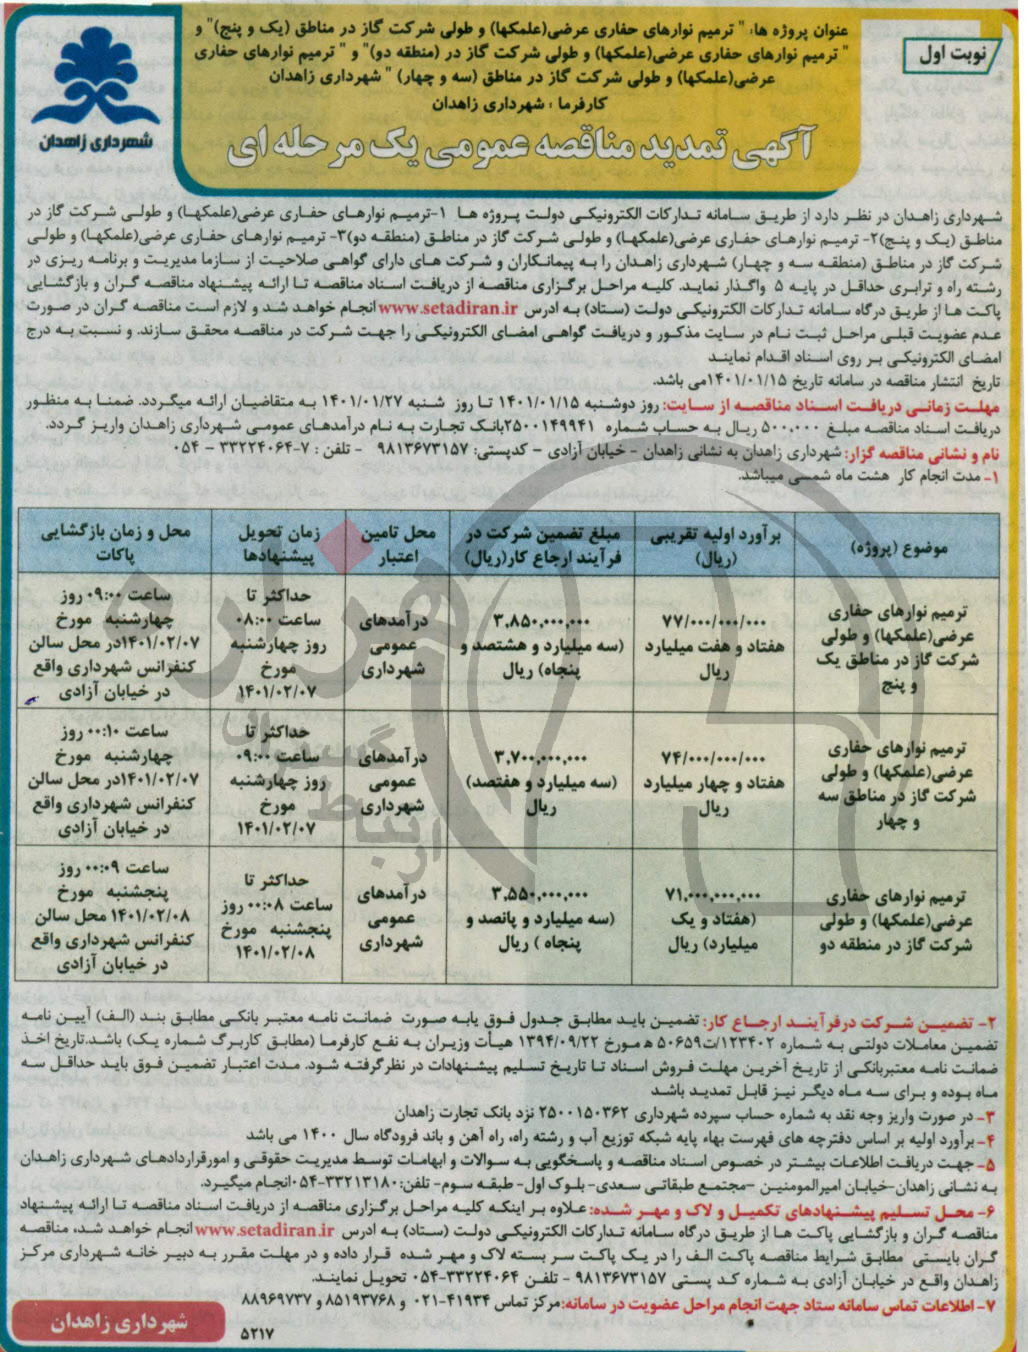 نوبت اول
عنوان پروژه ها: " ترمیم نوارهای حفاری عرضی(علمکها) و طولی شرکت گاز در مناطق (یک و پنج)" و
" ترمیم نوارهای حفاری عرضی(علمکها) و طولی شرکت گاز در (منطقه دو)" و " ترمیم نوارهای حفاری
عرضی(علمکها) و طولی شرکت گاز در مناطق (سه و چهار) " شهرداری زاهدان
کارفرما : شهرداری زاهدان
آگهی تمدید مناقصه عمومی یک مرحله ای
شهرداری زاهدان
شهرداری زاهدان در نظر دارد از طریق سامانه تدارکات الکترونیکی دولت پروژه ها ۱-ترمیم نوارهای حفاری عرضی(علمکها) و طولی شرکت گاز در
مناطق (یک و پنج)۲- ترمیم نوارهای حفاری عرضی(علمکها) و طولی شرکت گاز در مناطق (منطقه دو)۳- ترمیم نوارهای حفاری عرضی(علمکها) و طولی
شرکت گاز در مناطق (منطقه سه و چهار) شهرداری زاهدان را به پیمانکاران و شرکت های دارای گواهی صلاحیت از سازما مدیریت و برنامه ریزی در
رشته راه و ترابری حداقل در پایه ۵ واگذار نماید. کلیه مراحل برگزاری مناقصه از دریافت اسناد مناقصه تا ارائه پیشنهاد مناقصه گران و بازگشایی
پاکت ها از طریق درگاه سامانه تدارکات الکترونیکی دولت (ستاد) به ادرس www.setadiran.ir انجام خواهد شد و لازم است مناقصه گران در صورت
عدم عضویت قبلی مراحل ثبت نام در سایت مذکور و دریافت گواهی امضای الکترونیکی را جهت شرکت در مناقصه محقق سازند. و نسبت به درج
امضای الکترونیکی بر روی اسناد اقدام نمایند
تاریخ انتشار مناقصه در سامانه تاریخ ۱۴۰۱/۰۱/۱۵می باشد.
مهلت زمانی دریافت اسناد مناقصه از سایت: روز دوشنبه ۱۴۰۱/۰۱/۱۵ تا روز شنبه ۱۴۰۱/۰۱/۲۷ به متقاضیان ارائه میگردد. ضمنا به منظور
دریافت اسناد مناقصه مبلغ ۵۰۰,۰۰۰ ریال به حساب شماره ۲۵۰۰۱۴۹۹۴۱بانک تجارت به نام درآمدهای عمومی شهرداری زاهدان واریز گردد.
نام و نشانی مناقصه گزار: شهرداری زاهدان به نشانی زاهدان - خیابان آزادی - کدپستی: ۹۸۱۳۶۷۳۱۵۷ - تلفن : ۷-۳۳۲۲۴۰۶۴ - ۰۵۴
۱- مدت انجام کار هشت ماه شمسی میباشد.
موضوع (پروژه)
برآورد اولیه تقریبی
(ریال)
مبلغ تضمین شرکت در
فرآیند ارجاع کار(ریال)
محل تامین
اعتبار
زمان تحویل
پیشنهادها
محل و زمان بازگشایی
پاکات
ترمیم نوارهای حفاری
عرضی(علمکها) و طولی
شرکت گاز در مناطق یک
و پنج
۷۷/۰۰۰/۰۰۰/۰۰۰
هفتاد و هفت میلیارد
ریال
۳,۸۵۰,۰۰۰,۰۰۰
(سه میلیارد و هشتصد و
پنجاه) ریال
درآمدهای
عمومی
شهرداری
حداکثر تا
ساعت ۰۸:۰۰
روز چهارشنبه
مورخ
۱۴۰۱/۰۲/۰۷
ساعت ۰۹:۰۰ روز
چهارشنبه مورخ
۱۴۰۱/۰۲/۰۷در محل سالن
کنفرانس شهرداری واقع
در خیابان آزادی
ترمیم نوارهای حفاری
عرضی(علمکها) و طولی
شرکت گاز در مناطق سه
و چهار
۷۴/۰۰۰/۰۰۰/۰۰۰
هفتاد و چهار میلیارد
ریال
۳,۷۰۰,۰۰۰,۰۰۰
(سه میلیارد و هفتصد)
ریال
درآمدهای
عمومی
شهرداری
حداکثر تا
ساعت ۰۹:۰۰
روز چهارشنبه
مورخ
۱۴۰۱/۰۲/۰۷
ساعت ۰۰:۱۰ روز
چهارشنبه مورخ
۱۴۰۱/۰۲/۰۷در محل سالن
کنفرانس شهرداری واقع
در خیابان آزادی
ترمیم نوارهای حفاری
عرضی(علمکها) و طولی
شرکت گاز در منطقه دو
۷۱,۰۰۰,۰۰۰,۰۰۰
(هفتاد و یک
میلیارد) ریال
۳,۵۵۰,۰۰۰,۰۰۰
(سه میلیارد و پانصد و
پنجاه ) ریال
درآمدهای
عمومی
شهرداری
حداکثر تا
ساعت ۰۰:۰۸ روز
پنجشنبه مورخ
۱۴۰۱/۰۲/۰۸
ساعت ۰۰:۰۹ روز
پنجشنبه مورخ
۱۴۰۱/۰۲/۰۸ محل سالن
کنفرانس شهرداری واقع
در خیابان آزادی
۲- تضمین شرکت درفرآیند ارجاع کار: تضمین باید مطابق جدول فوق یابه صورت ضمانت نامه معتبر بانکی مطابق بند (الف) آیین نامه
تضمین معاملات دولتی به شماره ۱۲۳۴۰۲/ت۵۰۶۵۹ ه مورخ ۱۳۹۴/۰۹/۲۲ هیأت وزیران به نفع کارفرما (مطابق کاربرگ شماره یک) باشد.تاریخ اخذ
ضمانت نامه معتبربانکی از تاریخ آخرین مهلت فروش اسناد تا تاریخ تسلیم پیشنهادات در نظرگرفته شود. مدت اعتبار تضمین فوق باید حداقل سه
ماه بوده و برای سه ماه دیگر نیز قابل تمدید باشد
۳- در صورت واریز وجه نقد به شماره حساب سپرده شهرداری ۲۵۰۰۱۵۰۳۶۲ نزد بانک تجارت زاهدان
۴- برآورد اولیه بر اساس دفترچه های فهرست بهاء پایه شبکه توزیع آب و رشته راه، راه آهن و باند فرودگاه سال ۱۴۰۰ می باشد
۵- جهت دریافت اطلاعات بیشتر در خصوص اسناد مناقصه و پاسخگویی به سوالات و ابهامات توسط مدیریت حقوقی و امورقراردادهای شهرداری زاهدان
به نشانی زاهدان-خیابان امیرالمومنین -مجتمع طبقاتی سعدی- بلوک اول- طبقه سوم- تلفن:۳۳۲۱۳۱۸۰-۰۵۴انجام میگیرد.
۶- محل تسلیم پیشنهادهای تکمیل و لاک و مهر شده: علاوه بر اینکه کلیه مراحل برگزاری مناقصه از دریافت اسناد مناقصه تا ارائه پیشنهاد
مناقصه گران و بازگشایی پاکت ها از طریق درگاه سامانه تدارکات الکترونیکی دولت (ستاد) به ادرس www.setadiran.ir انجام خواهد شد، مناقصه
گران بایستی مطابق شرایط مناقصه پاکت الف را در یک پاکت سر بسته لاک و مهر شده قرار داده و در مهلت مقرر به دبیر خانه شهرداری مرکز
زاهدان واقع در خیابان آزادی به شماره کد پستی ۹۸۱۳۶۷۳۱۵۷ - تلفن ۳۳۲۲۴۰۶۴-۰۵۴ تحویل نمایند.
۷- اطلاعات تماس سامانه ستاد جهت انجام مراحل عضویت در سامانه:مرکز تماس ۴۱۹۳۴-۰۲۱ و ۸۵۱۹۳۷۶۸ و ۸۸۹۶۹۷۳۷
۵۲۱۷
شهرداری زاهدان